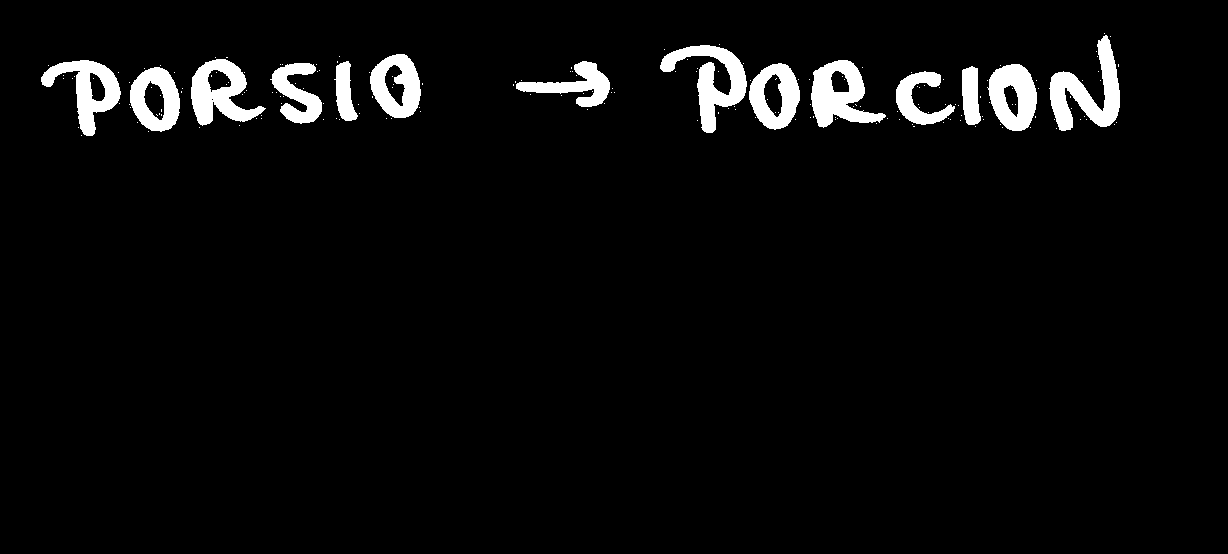 PORSIO → PORCION